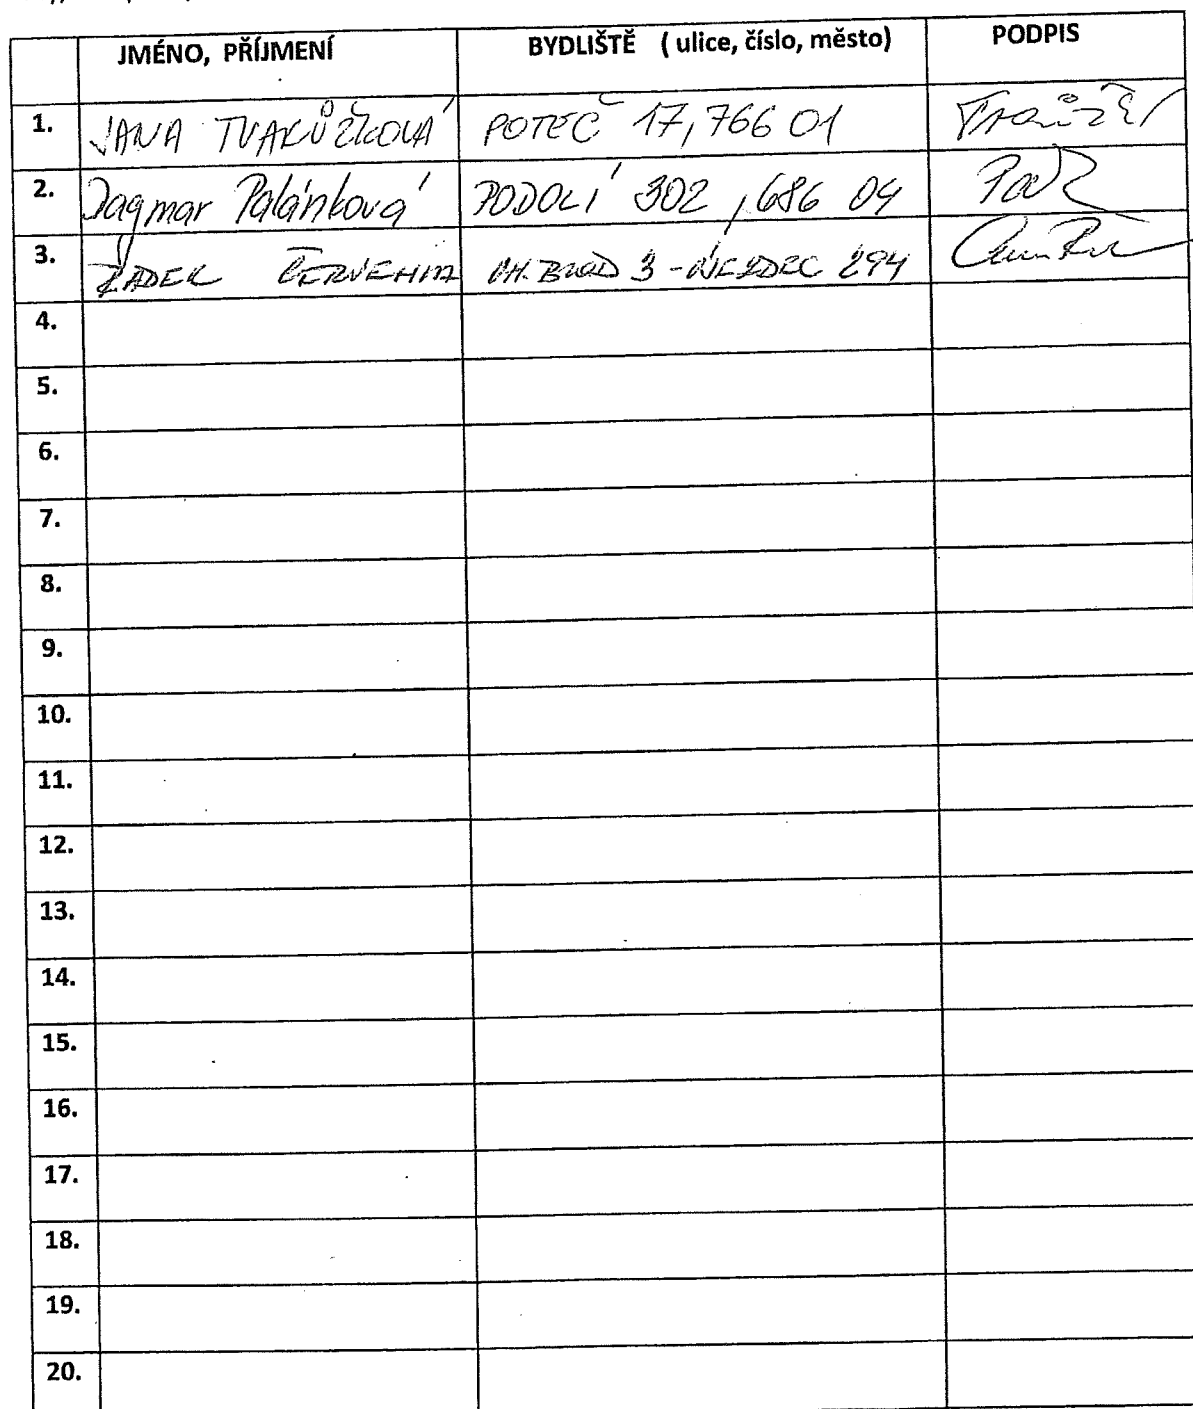 JMÉNO, PŘÍJMENÍ BYDLIŠTĚ ( ulice, číslo, město) PODPIS
1. JANA TVARŮŽKOVÁ POTEČ 17, 766 01
2. Dagmar Palánková PODOLÍ 302, 686 04
3. RADEK ČERVENKA UH. BROD 3 - ÚJEZDEC 294
4.
5.
6.
7.
8.
9.
10.
11.
12.
13.
14.
15.
16.
17.
18.
19.
20.